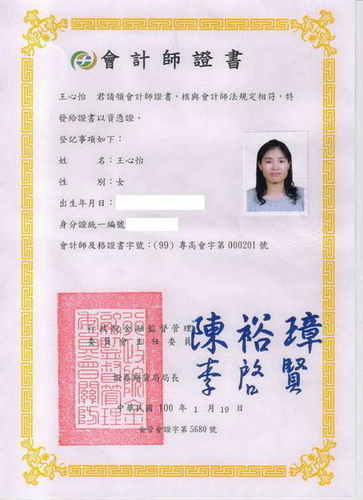 會計師證書
王心怡 君請領會計師證書，核與會計師法規定相符，特
發給證書以資憑證。
登記事項如下：
姓 名：王心怡
性 別：女
出生年月日：
身分證統一編號
會計師及格證書字號：(99) 專高會字第 000201 號
行政院金融監督管理
委員會主任委員
陳裕璋
證券期貨局局長
李啟賢
中華民國 100 年 1 月 19 日
金管會證字第 5680 號